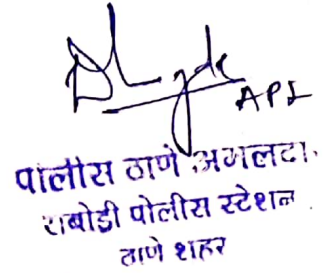 API
पोलीस ठाणे अंमलदार
राबोडी पोलीस स्टेशन
ठाणे शहर